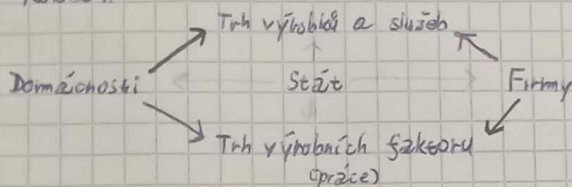 Trh výrobků a služeb
Domácnosti Stát Firmy
Trh výrobních faktorů
(práce)